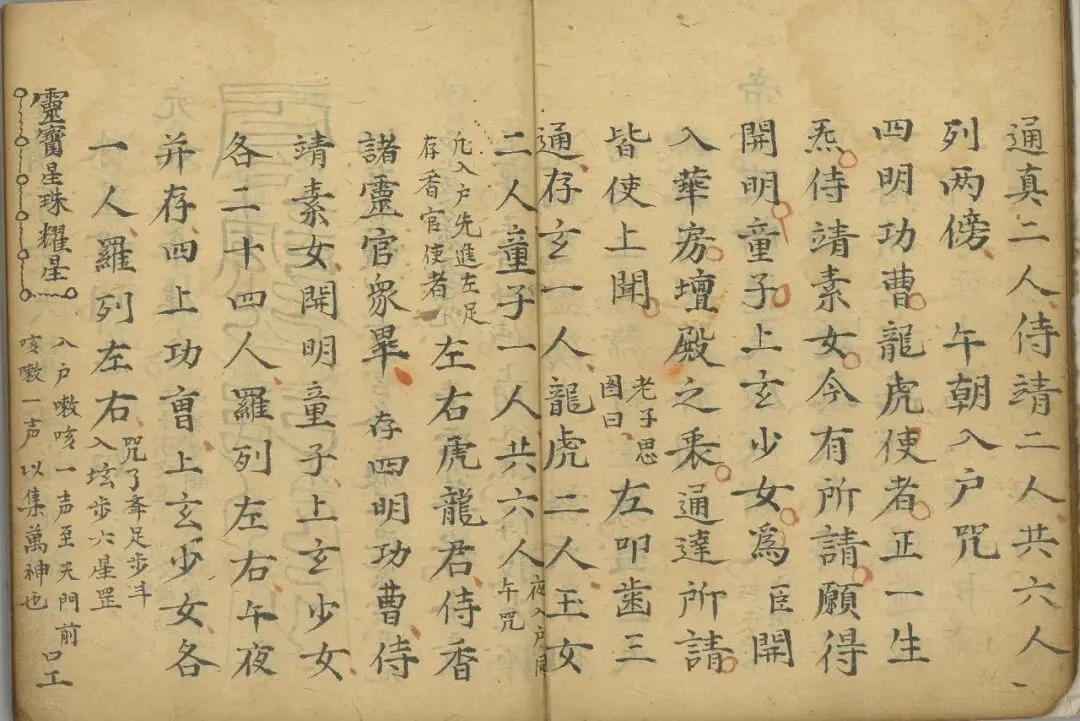 通真二人侍靖二人共六人
列两傍 午朝入户咒
四明功曹龍虎使者正一生
炁侍靖素女今有所請願得
開明童子上玄少女爲臣開
入華房壇殿之衷通達所請
皆使上聞 老子思图曰 左叩齒三
通存玄一人龍虎二人玉女
二人童子一人共六人 夜入户同午咒
凡入户先進左足存香官使者 左右虎龍君侍香
諸靈官眾畢 存四明功曹侍
靖素女開明童子上玄少女
各二十四人羅列左右午夜
并存四上功曹上玄少女各
一人羅列左右 咒了牽足步斗入坛步六星罡
靈寳星珠耀星 入户嗽咳一声至天門前咳嗽一声以集萬神也